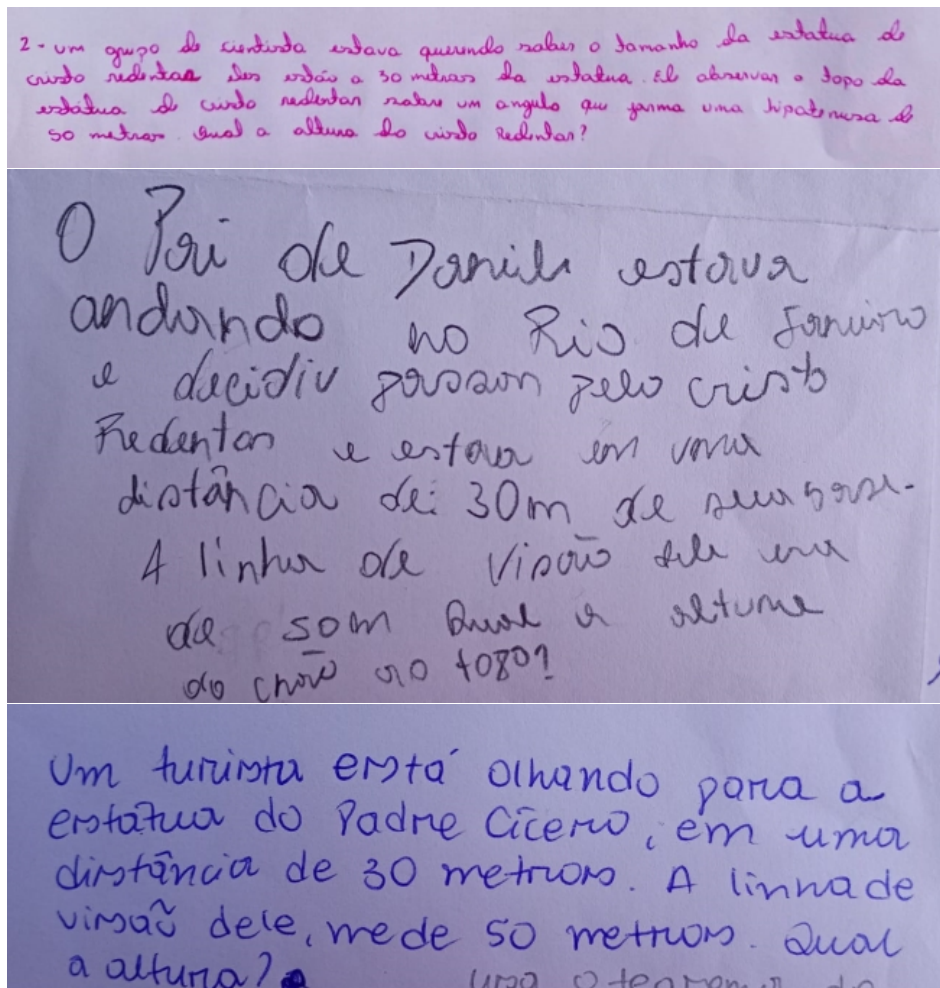 2 - um grupo de cientista estava querendo saber o tamanho da estatua do
cristo redentor eles estão a 30 metros da estatua. El observar o topo da
estátua do cristo redentor sobre um angulo que forma uma hipotenusa de
50 metros. Qual a altura do cristo Redentor?
O Pai de Danilo estava
andando no Rio de Janeiro
e decidiu passar pelo cristo
Redentor e estava em uma
distância de: 30m de sua base.
A linha de visão dele era
de 50m Qual a altura
do chão ao topo?
Um turista está olhando para a
estátua do Padre Cícero, em uma
distância de 30 metros. A linha de
visão dele, mede 50 metros. Qual
a altura?